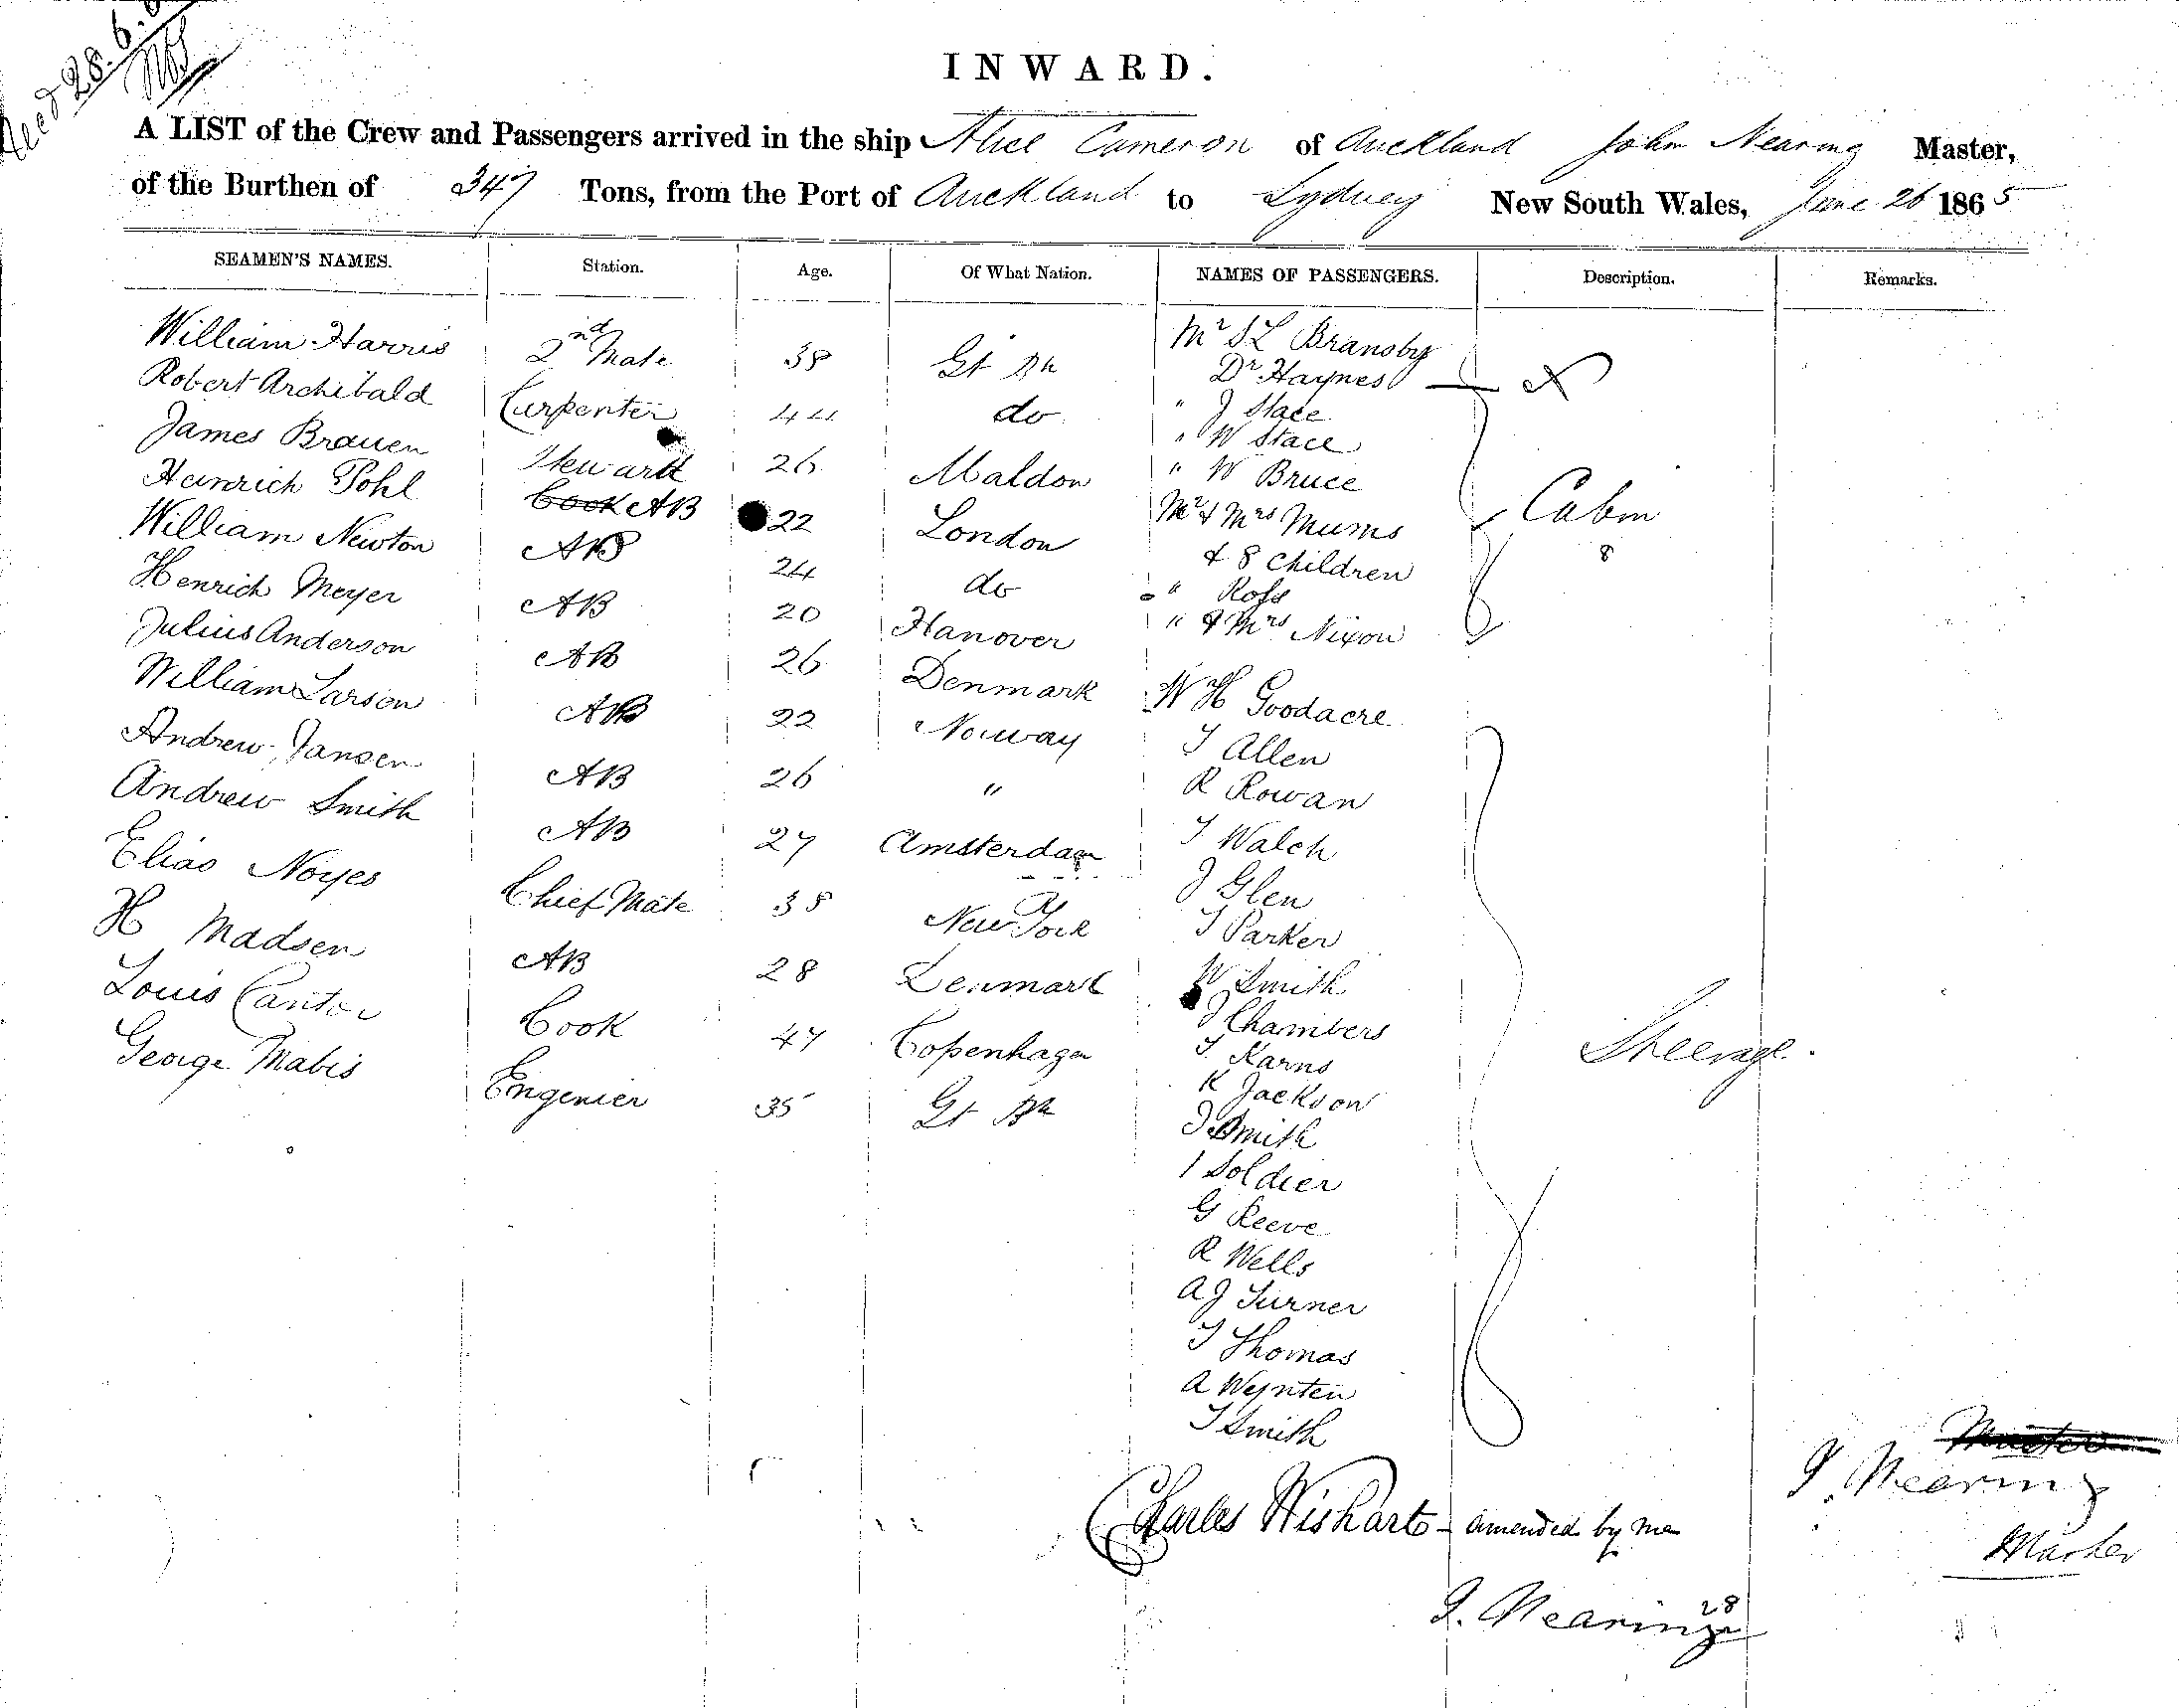 Recd 28.6.
INWARD.
A LIST of the Crew and Passengers arrived in the ship Alice Cameron of Auckland John Nearing Master,
of the Burthen of 347 Tons, from the Port of Auckland to Sydney New South Wales, June 26 1865
SEAMEN'S NAMES. Station. Age. Of What Nation. NAMES OF PASSENGERS. Description. Remarks.
William Harris 2nd Mate 38 Gt Bn
Robert Archibald Carpenter 44 do
James Brauen Steward 26 Maldon
Heinrich Pohl Cook AB 22 London
William Newton AB 24 do
Henrich Meyer AB 20 Hanover
Julius Anderson AB 26 Denmark
William Larson AB 22 Norway
Andrew Jansen AB 26 "
Andrew Smith AB 27 Amsterdam
Elias Noyes Chief Mate 38 New York
H Madsen AB 28 Denmark
Louis Canto Cook 47 Copenhagen
George Mabis Engenier 35 Gt Bn
Mr S L Bransby
Dr Haynes X
" J Stace
" W Stace
" W Bruce
Mr & Mrs Mums Cabin
& 8 Children 8
" Ross
" & Mrs Nixon
W H Goodacre
T Allen
R Rowan
T Walch
J Glen
T Parker
W Smith
J Chambers
T Karns Steerage.
K Jackson
J Smith
1 Soldier
G Reeve
R Wells
A J Turner
T Thomas
A Weynten
T Smith
Master
J. Nearing
Master
Charles Wishart - amended by me
J. Nearing 28